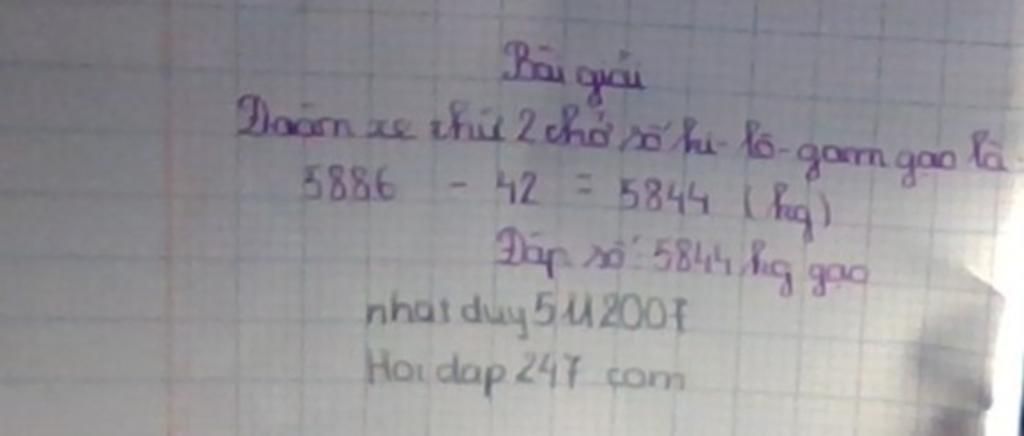 Bài giải
Đoàn xe thứ 2 chở số ki-lô-gam gạo là
5886 - 42 = 5844 (kg)
Đáp số: 5844 kg gạo
nhatduy5112007
Hoidap247 com